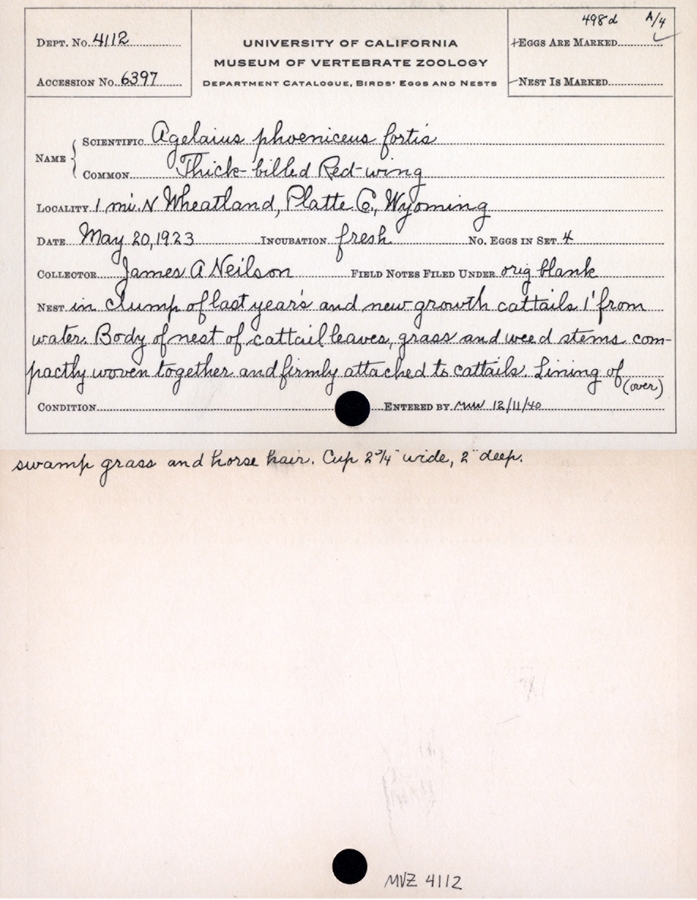 498d A/4
DEPT. NO. 4112
UNIVERSITY OF CALIFORNIA
MUSEUM OF VERTEBRATE ZOOLOGY
DEPARTMENT CATALOGUE, BIRDS' EGGS AND NESTS
ACCESSION NO. 6397
EGGS ARE MARKED
NEST IS MARKED
NAME
SCIENTIFIC Agelaius phoeniceus fortis
COMMON Thick-billed Red-wing
LOCALITY 1 mi. N Wheatland, Platte C., Wyoming
DATE May 20, 1923 INCUBATION fresh NO. EGGS IN SET 4
COLLECTOR James A Neilson FIELD NOTES FILED UNDER orig blank
NEST in clump of last year's and new growth cattails 1' from
water. Body of nest of cattail leaves, grass and weed stems com-
pactly woven together and firmly attached to cattails. Lining of
(over)
CONDITION ENTERED BY MW 12/11/40
swamp grass and horse hair. Cup 2 3/4" wide, 2" deep.
MVZ 4112